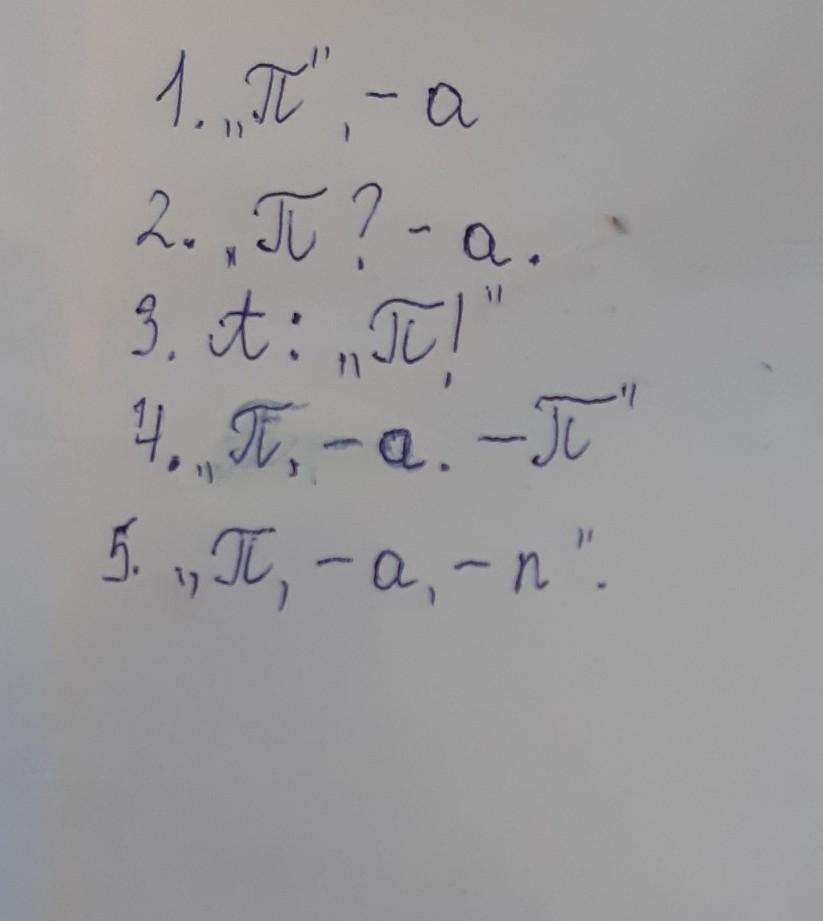 1. „П", - а
2. „П? - а.
3. А: „П!"
4. „П, - а. - П"
5. „П, - а, - п".